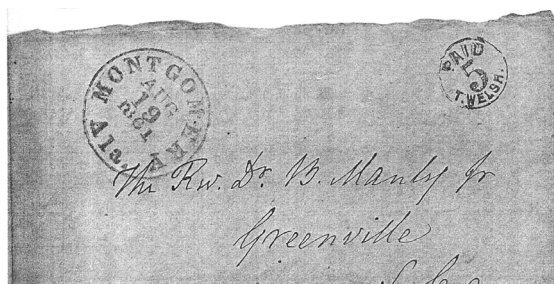 MONTGOMERY Ala.
AUG
19
1861
PAID
5
T. WELSH.
The Rev. Dr. B. Manly Jr
Greenville